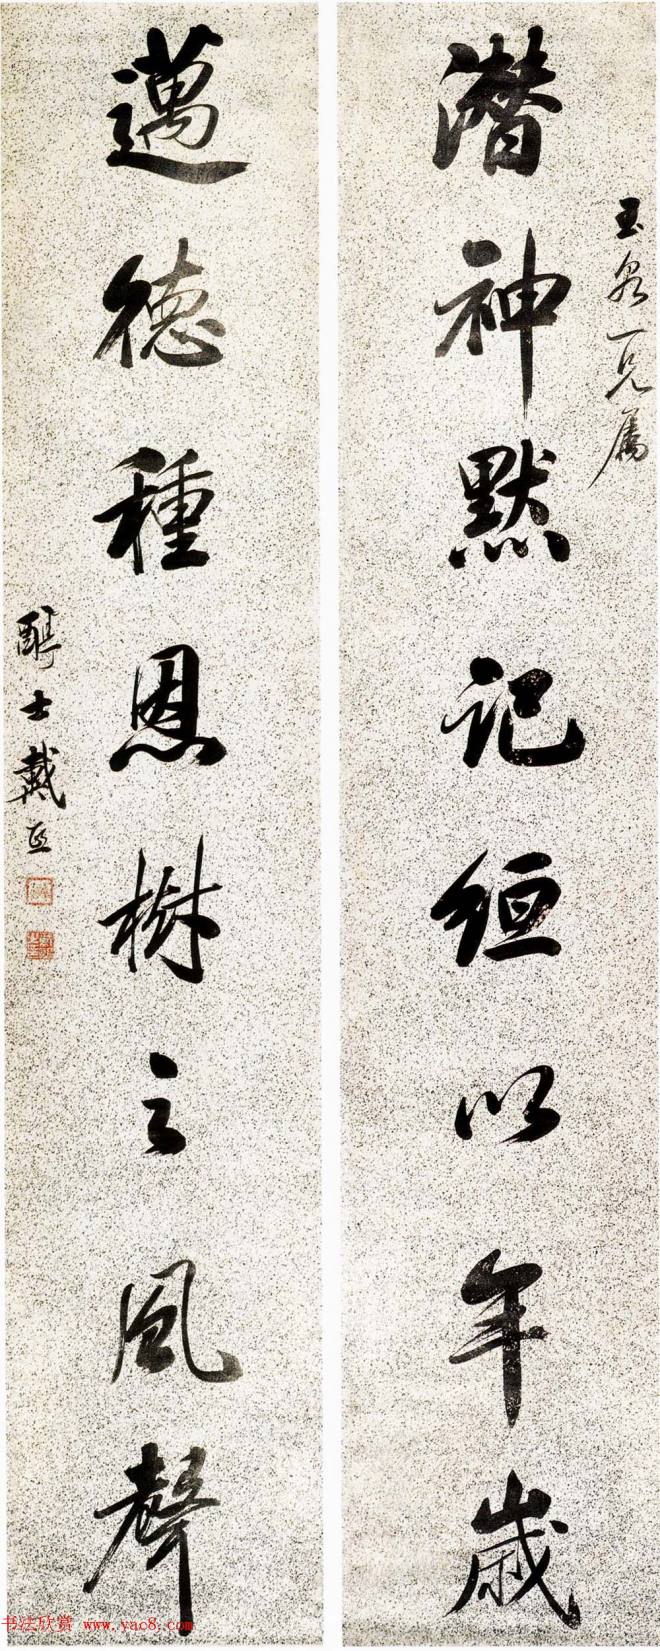 玉泉一兄属
潜神默记絙以年歲
邁德種恩樹之風聲
醇士戴熙
书法欣赏 www.yac8.com